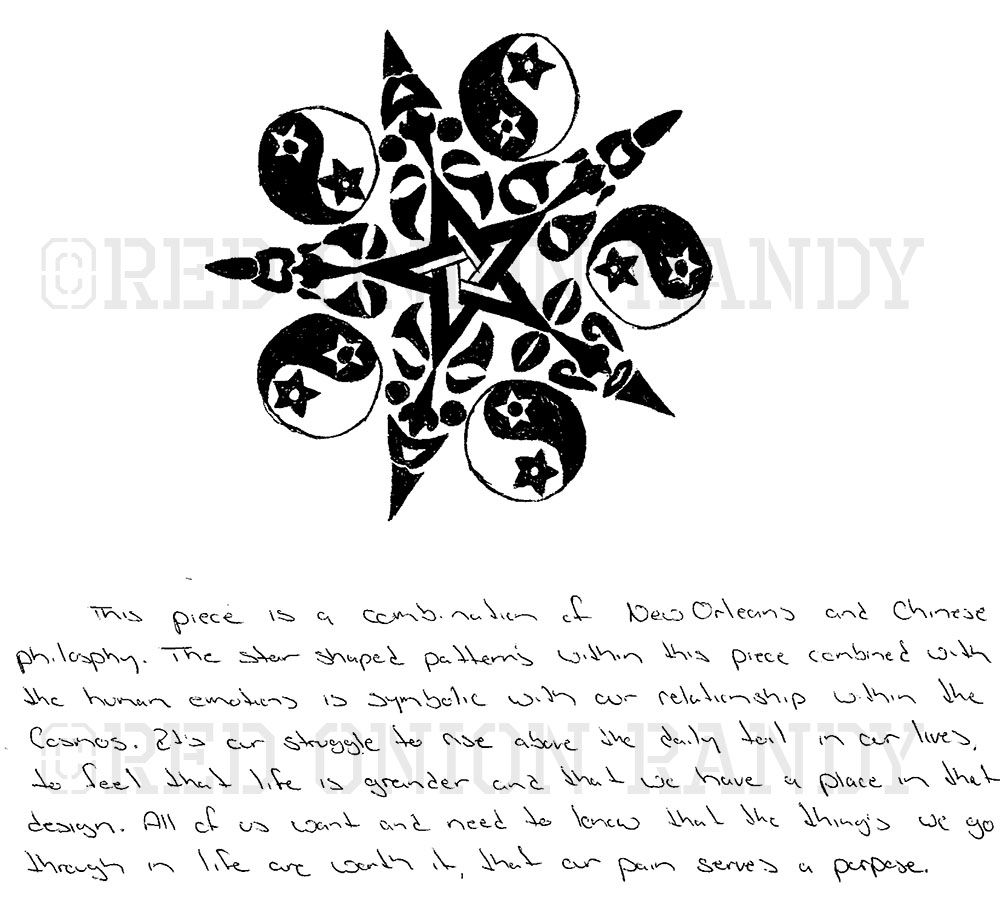 ©RED ONION RANDY
This piece is a combination of New Orleans and Chinese
philosphy. The star shaped pattern's within this piece combined with
the human emotions is symbolic with our relationship within the
Cosmos. It's our struggle to rise above the daily toil in our lives,
©RED ONION RANDY
to feel that life is grander and that we have a place in that
design. All of us want and need to know that the thing's we go
through in life are worth it, that our pain serves a purpose.